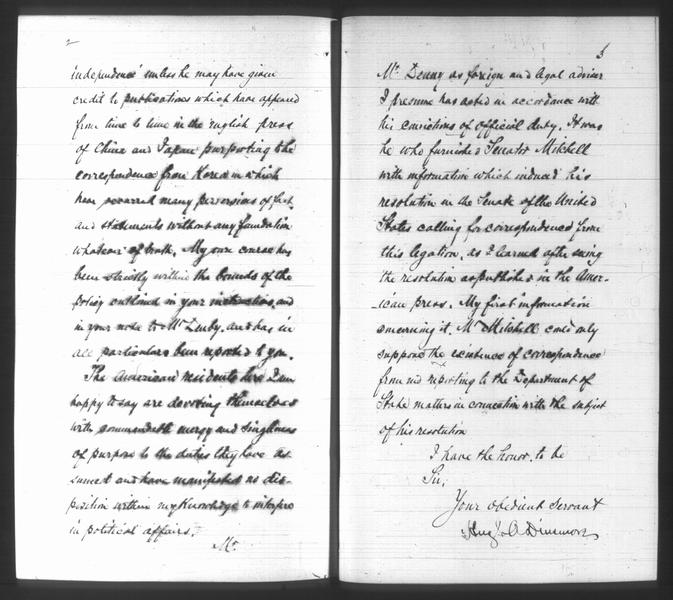 2
independence' unless he may have given
credit to publications which have appeared
from time to time in the English press
of China and Japan purporting to be
correspondence from Korea in which
have occurred many perversions of fact,
and statements without any foundation
whatever of truth. My own course has
been strictly within the bounds of the
policy outlined in your instructions, and
in your note to Mr Denby, and has in
all particulars been reported to you.
The American residents here I am
happy to say are devoting themselves
with commendable energy and singleness
of purpose to the duties they have as-
sumed and have manifested no dis-
position within my knowledge to interfere
in political affairs.
Mr
3
Mr Denny as foreign and legal adviser
I presume has acted in accordance with
his convictions of official duty. It was
he who furnished Senator Mitchell
with information which induced his
resolution in the Senate of the United
States calling for correspondence from
this legation, as I learned after seeing
the resolution as published in the Amer-
ican press. My first information
concerning it. Mr Mitchell could only
suppose the existence of correspondence
from my reporting to the Department of
State matters in connection with the subject
of his resolution
I have the honor, to be
Sir,
Your obedient servant
Hugh A Dinsmore